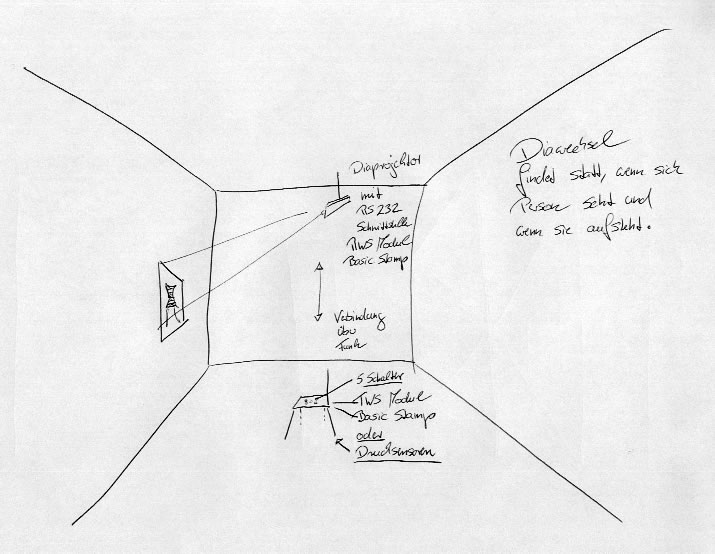 Diaprojektor
mit
RS 232
Schnittstelle
RWS Modul
Basic Stamp
Diawechsel
findet statt, wenn sich
Person setzt und
wenn sie aufsteht.
Verbindung
über
Funk
5 Schalter
TWS Modul
Basic Stamp
oder
Drucksensoren